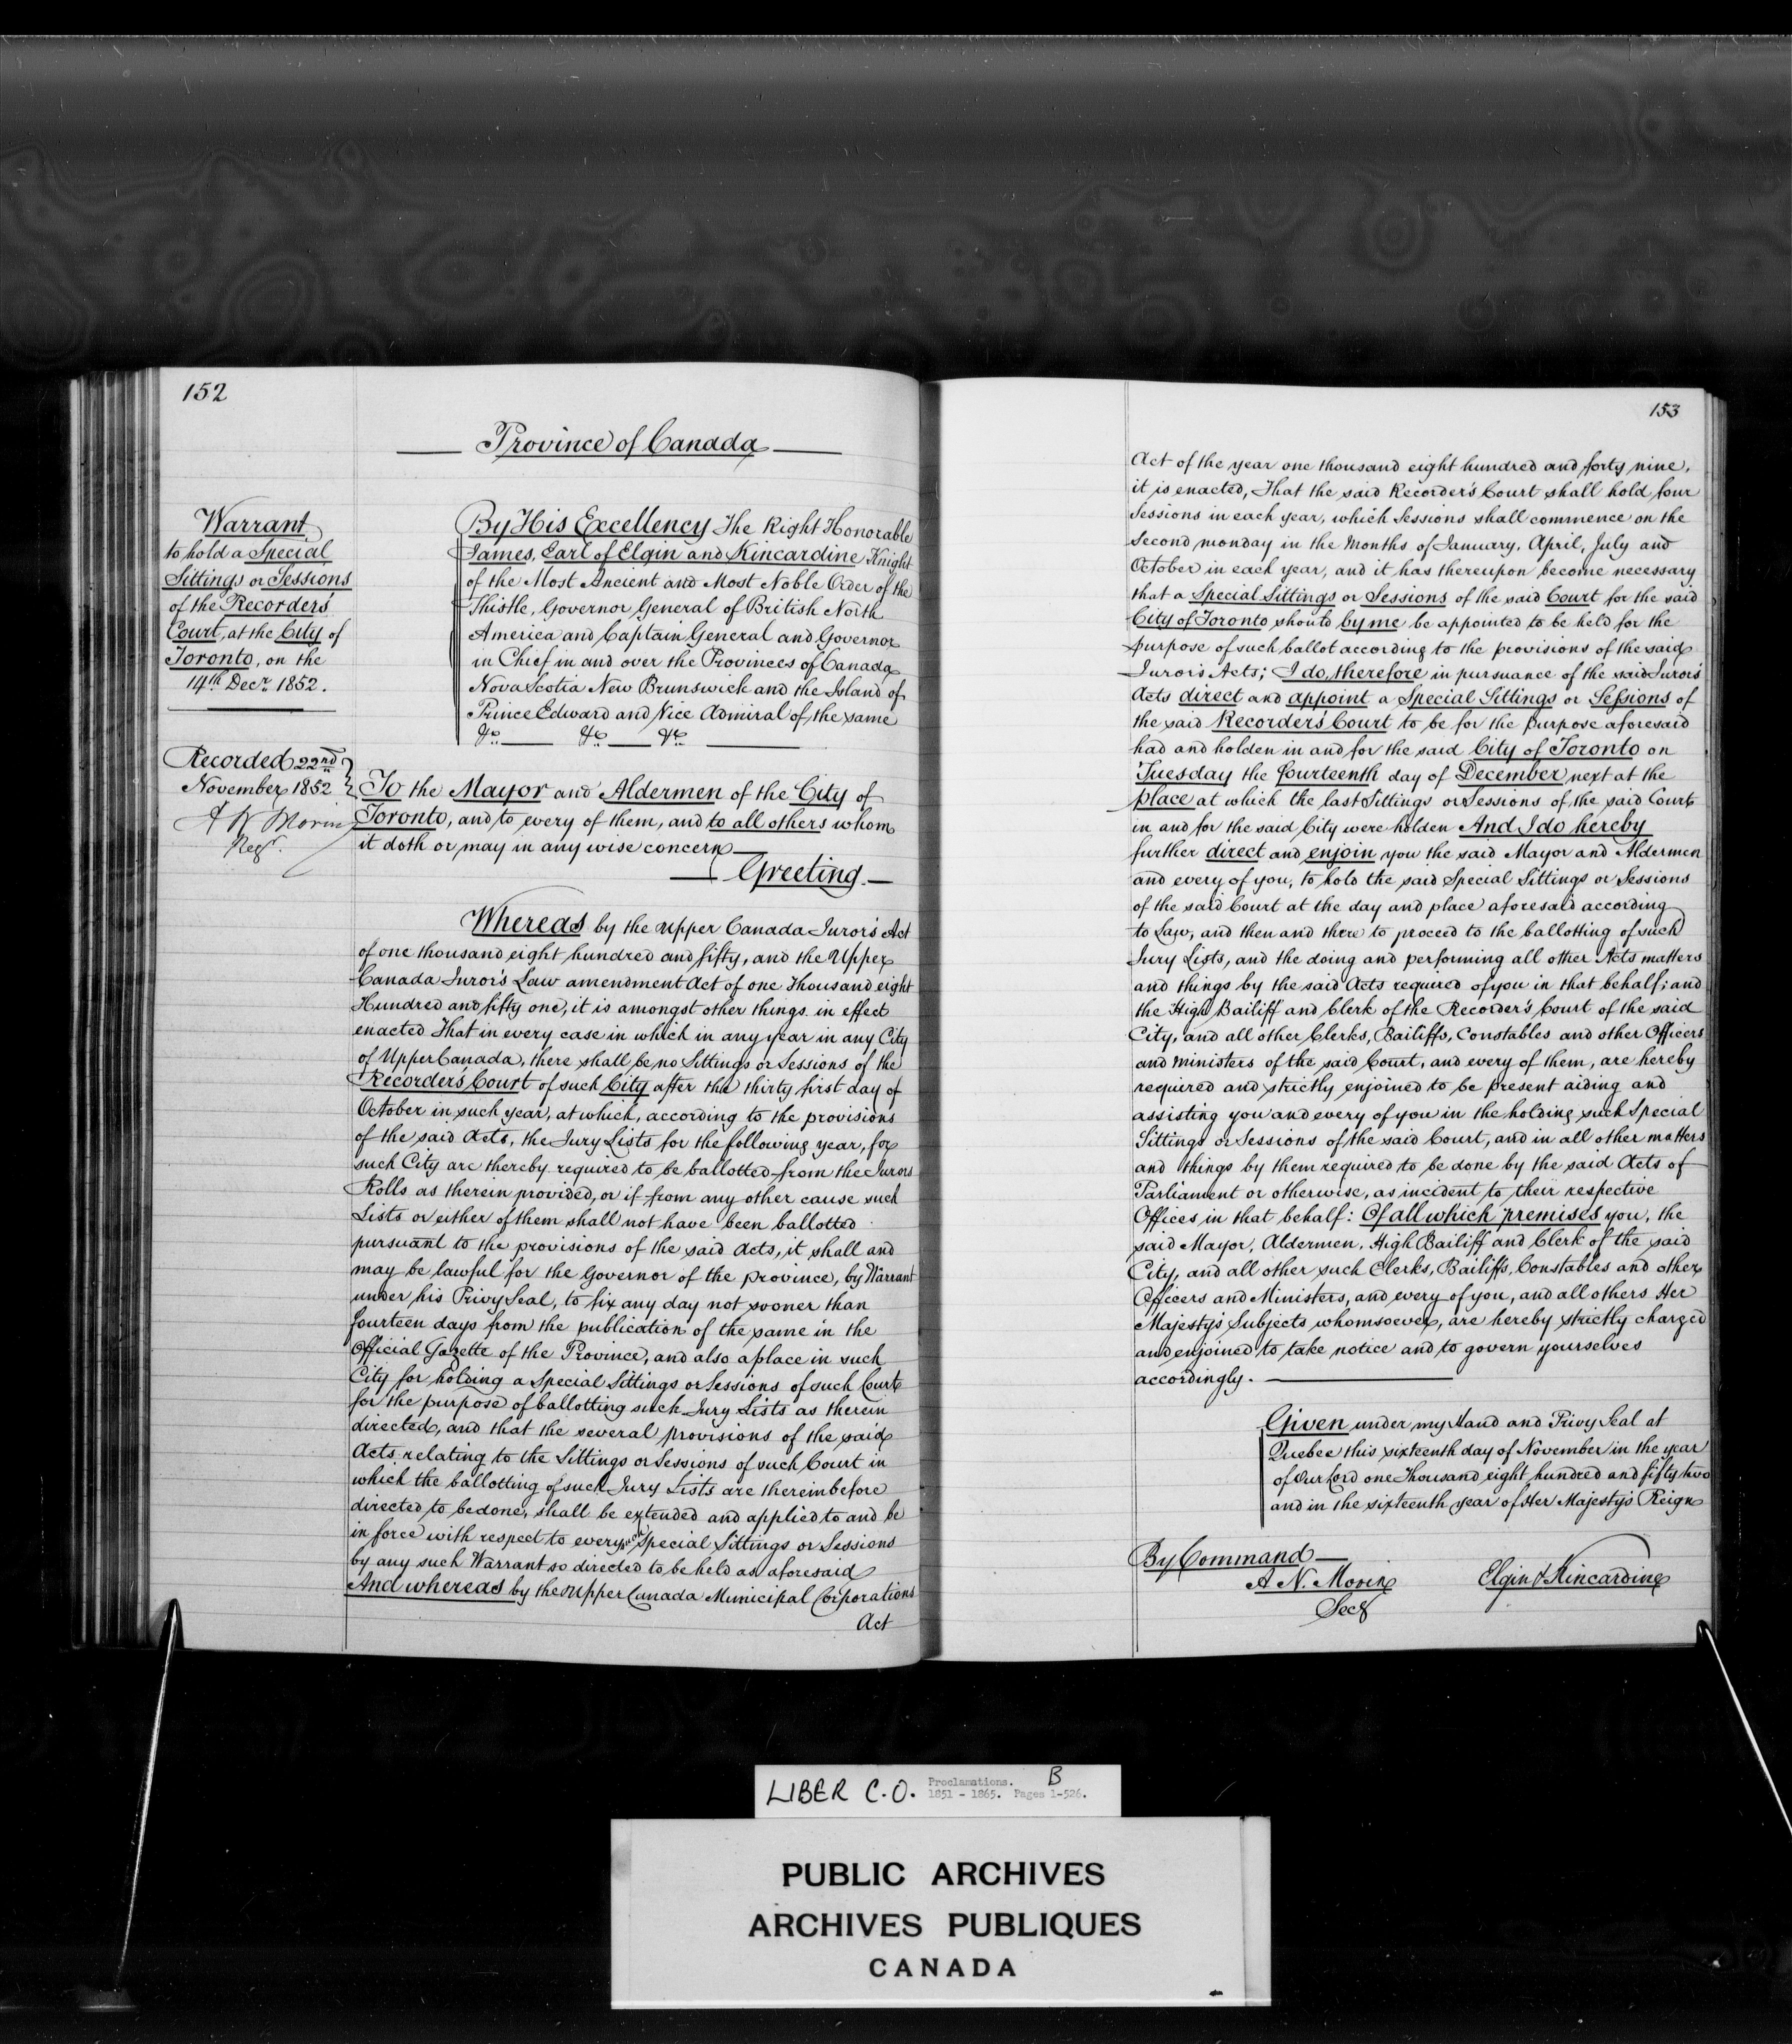 152
Province of Canada
Warrant
to hold a Special
Sittings or Sessions
of the Recorder's
Court, at the City of
Toronto, on the
14th Decr. 1852.
Recorded 22nd
November 1852
A N Morin
Regr.
By His Excellency The Right Honorable
James, Earl of Elgin and Kincardine Knight
of the Most Ancient and Most Noble Order of the
Thistle, Governor General of British North
America and Captain General and Governor
in Chief in and over the Provinces of Canada
Nova Scotia New Brunswick and the Island of
Prince Edward and Vice Admiral of the same
&c. &c. &c.
To the Mayor and Aldermen of the City of
Toronto, and to every of them, and to all others whom
it doth or may in any wise concern
Greeting.
Whereas by the Upper Canada Juror's Act
of one thousand eight hundred and fifty, and the Upper
Canada Juror's Law amendment Act of one Thousand eight
Hundred and fifty one, it is amongst other things in effect
enacted That in every case in which in any year in any City
of Upper Canada, there shall be no Sittings or Sessions of the
Recorder's Court of such City after the thirty first day of
October in such year, at which, according to the provisions
of the said Acts, the Jury Lists for the following year, for
such City are thereby required to be ballotted from the Jurors
Rolls as therein provided, or if from any other cause such
Lists or either of them shall not have been ballotted
pursuant to the provisions of the said Acts, it shall and
may be lawful for the Governor of the province, by Warrant
under his Privy Seal, to fix any day not sooner than
fourteen days from the publication of the same in the
Official Gazette of the Province, and also a place in such
City for holding a Special Sittings or Sessions of such Court
for the purpose of ballotting such Jury Lists as therein
directed, and that the several provisions of the said
Acts relating to the Sittings or Sessions of such Court in
which the ballotting of such Jury Lists are thereinbefore
directed to be done, shall be extended and applied to and be
in force with respect to every such Special Sittings or Sessions
by any such Warrant so directed to be held as aforesaid
And whereas by the Upper Canada Municipal Corporations
Act
153
Act of the year one thousand eight hundred and forty nine,
it is enacted, That the said Recorder's Court shall hold four
Sessions in each year, which Sessions shall commence on the
Second monday in the Months of January, April, July and
October in each year, and it has thereupon become necessary
that a Special Sittings or Sessions of the said Court for the said
City of Toronto should by me be appointed to be held for the
purpose of such ballot according to the provisions of the said
Juror's Acts; I do, therefore in pursuance of the said Jurors'
Acts direct and appoint a Special Sittings or Sessions of
the said Recorder's Court to be for the purpose aforesaid
had and holden in and for the said City of Toronto on
Tuesday the fourteenth day of December next at the
place at which the last Sittings or Sessions of the said Court
in and for the said City were holden And I do hereby
further direct and enjoin you the said Mayor and Aldermen
and every of you, to hold the said Special Sittings or Sessions
of the said Court at the day and place aforesaid according
to Law, and then and there to proceed to the ballotting of such
Jury Lists, and the doing and performing all other Acts matters
and things by the said Acts required of you in that behalf; and
the High Bailiff and Clerk of the Recorder's Court of the said
City, and all other Clerks, Bailiffs, Constables and other Officers
and Ministers of the said Court, and every of them, are hereby
required and strictly enjoined to be present aiding and
assisting you and every of you in the holding such Special
Sittings or Sessions of the said Court, and in all other matters
and things by them required to be done by the said Acts of
Parliament or otherwise, as incident to their respective
Offices in that behalf: Of all which premises you, the
said Mayor, Aldermen, High Bailiff and Clerk of the said
City, and all other such Clerks, Bailiffs, Constables and other
Officers and Ministers, and every of you, and all others Her
Majesty's Subjects whomsoever, are hereby strictly charged
and enjoined to take notice and to govern yourselves
accordingly.
Given under my Hand and Privy Seal at
Quebec this sixteenth day of November in the year
of Our Lord one Thousand eight hundred and fifty two
and in the sixteenth year of Her Majesty's Reign
By Command
A. N. Morin
Secy
Elgin & Kincardine
LIBER C.O. Proclamations. B
1851 - 1865. Pages 1-526.
PUBLIC ARCHIVES
ARCHIVES PUBLIQUES
CANADA